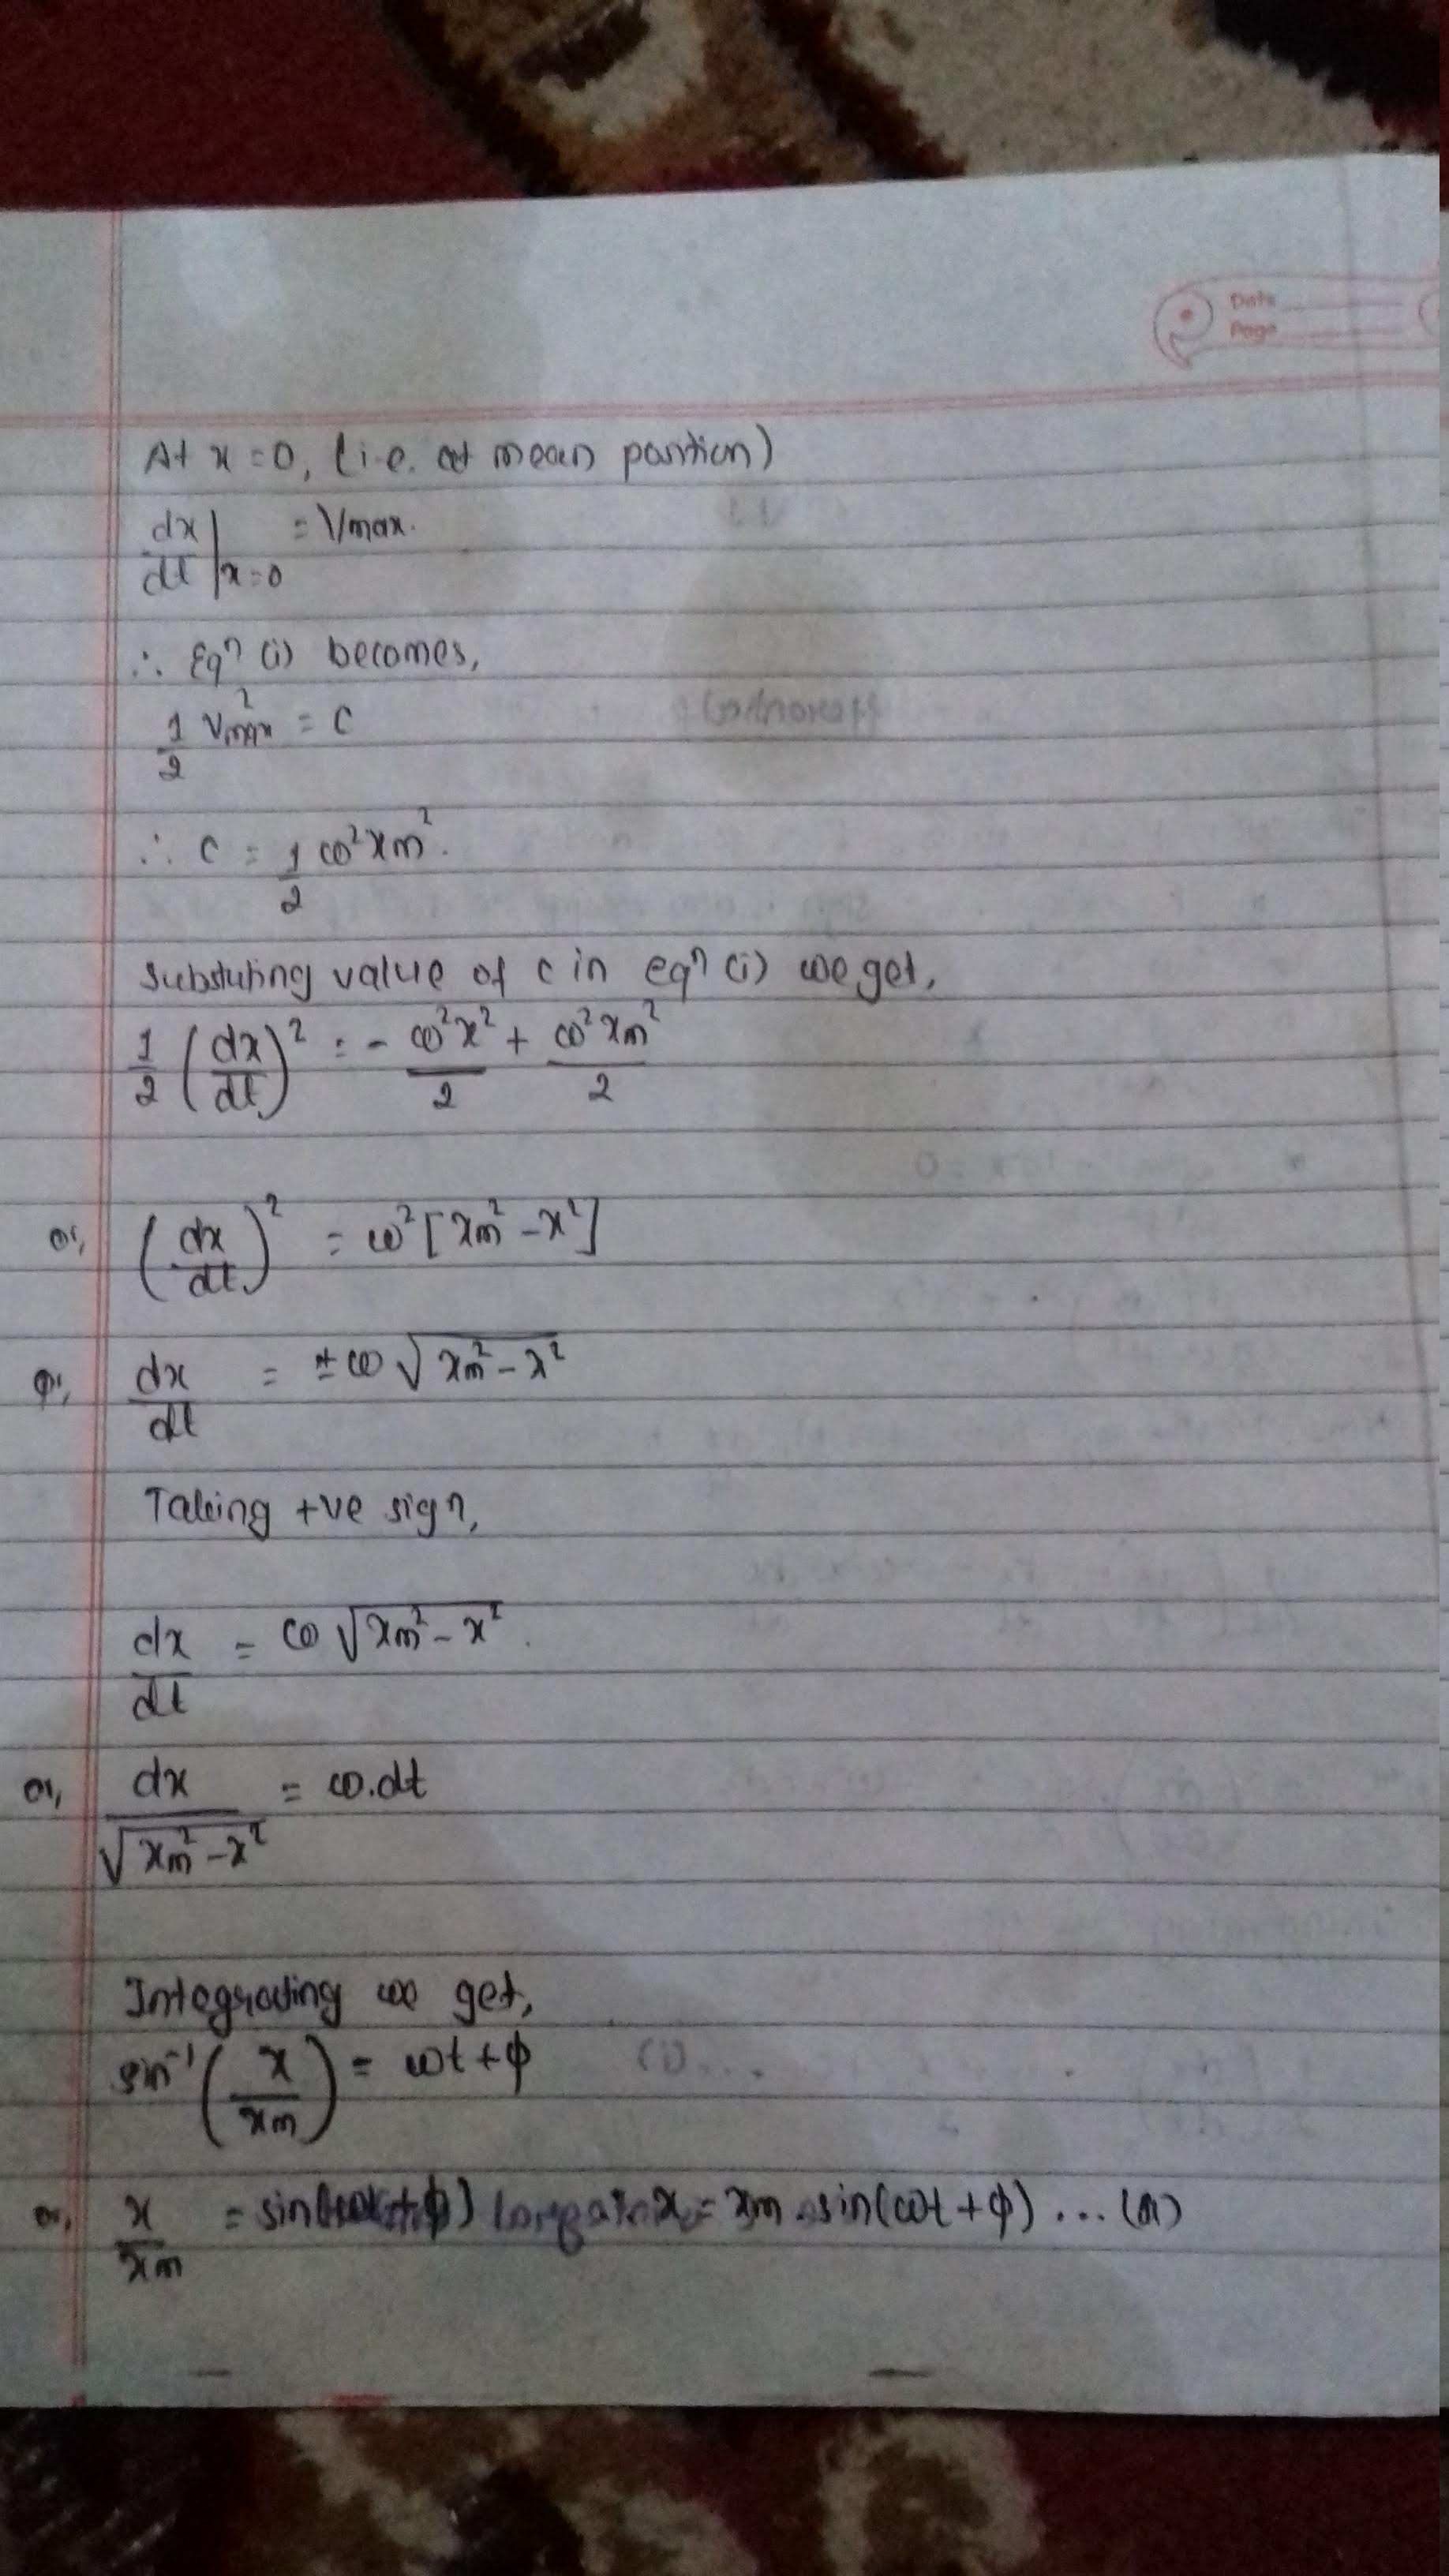 Date
Page
At x = 0, (i.e. at mean position)
dx/dt |x=0 = Vmax.
∴ Eqⁿ (i) becomes,
1/2 Vmax² = C
∴ C = 1/2 ω²xm².
Substuting value of c in eqⁿ (i) we get,
1/2 (dx/dt)² = - ω²x²/2 + ω²xm²/2
or, (dx/dt)² = ω² [xm² - x²]
or, dx/dt = ± ω √(xm² - x²)
Taking +ve sign,
dx/dt = ω √(xm² - x²).
or, dx/√(xm² - x²) = ω.dt
Integrating we get,
sin⁻¹ (x/xm) = ωt + φ
or, x/xm = sin(ωt + φ) x = xm sin(ωt + φ) ... (a)